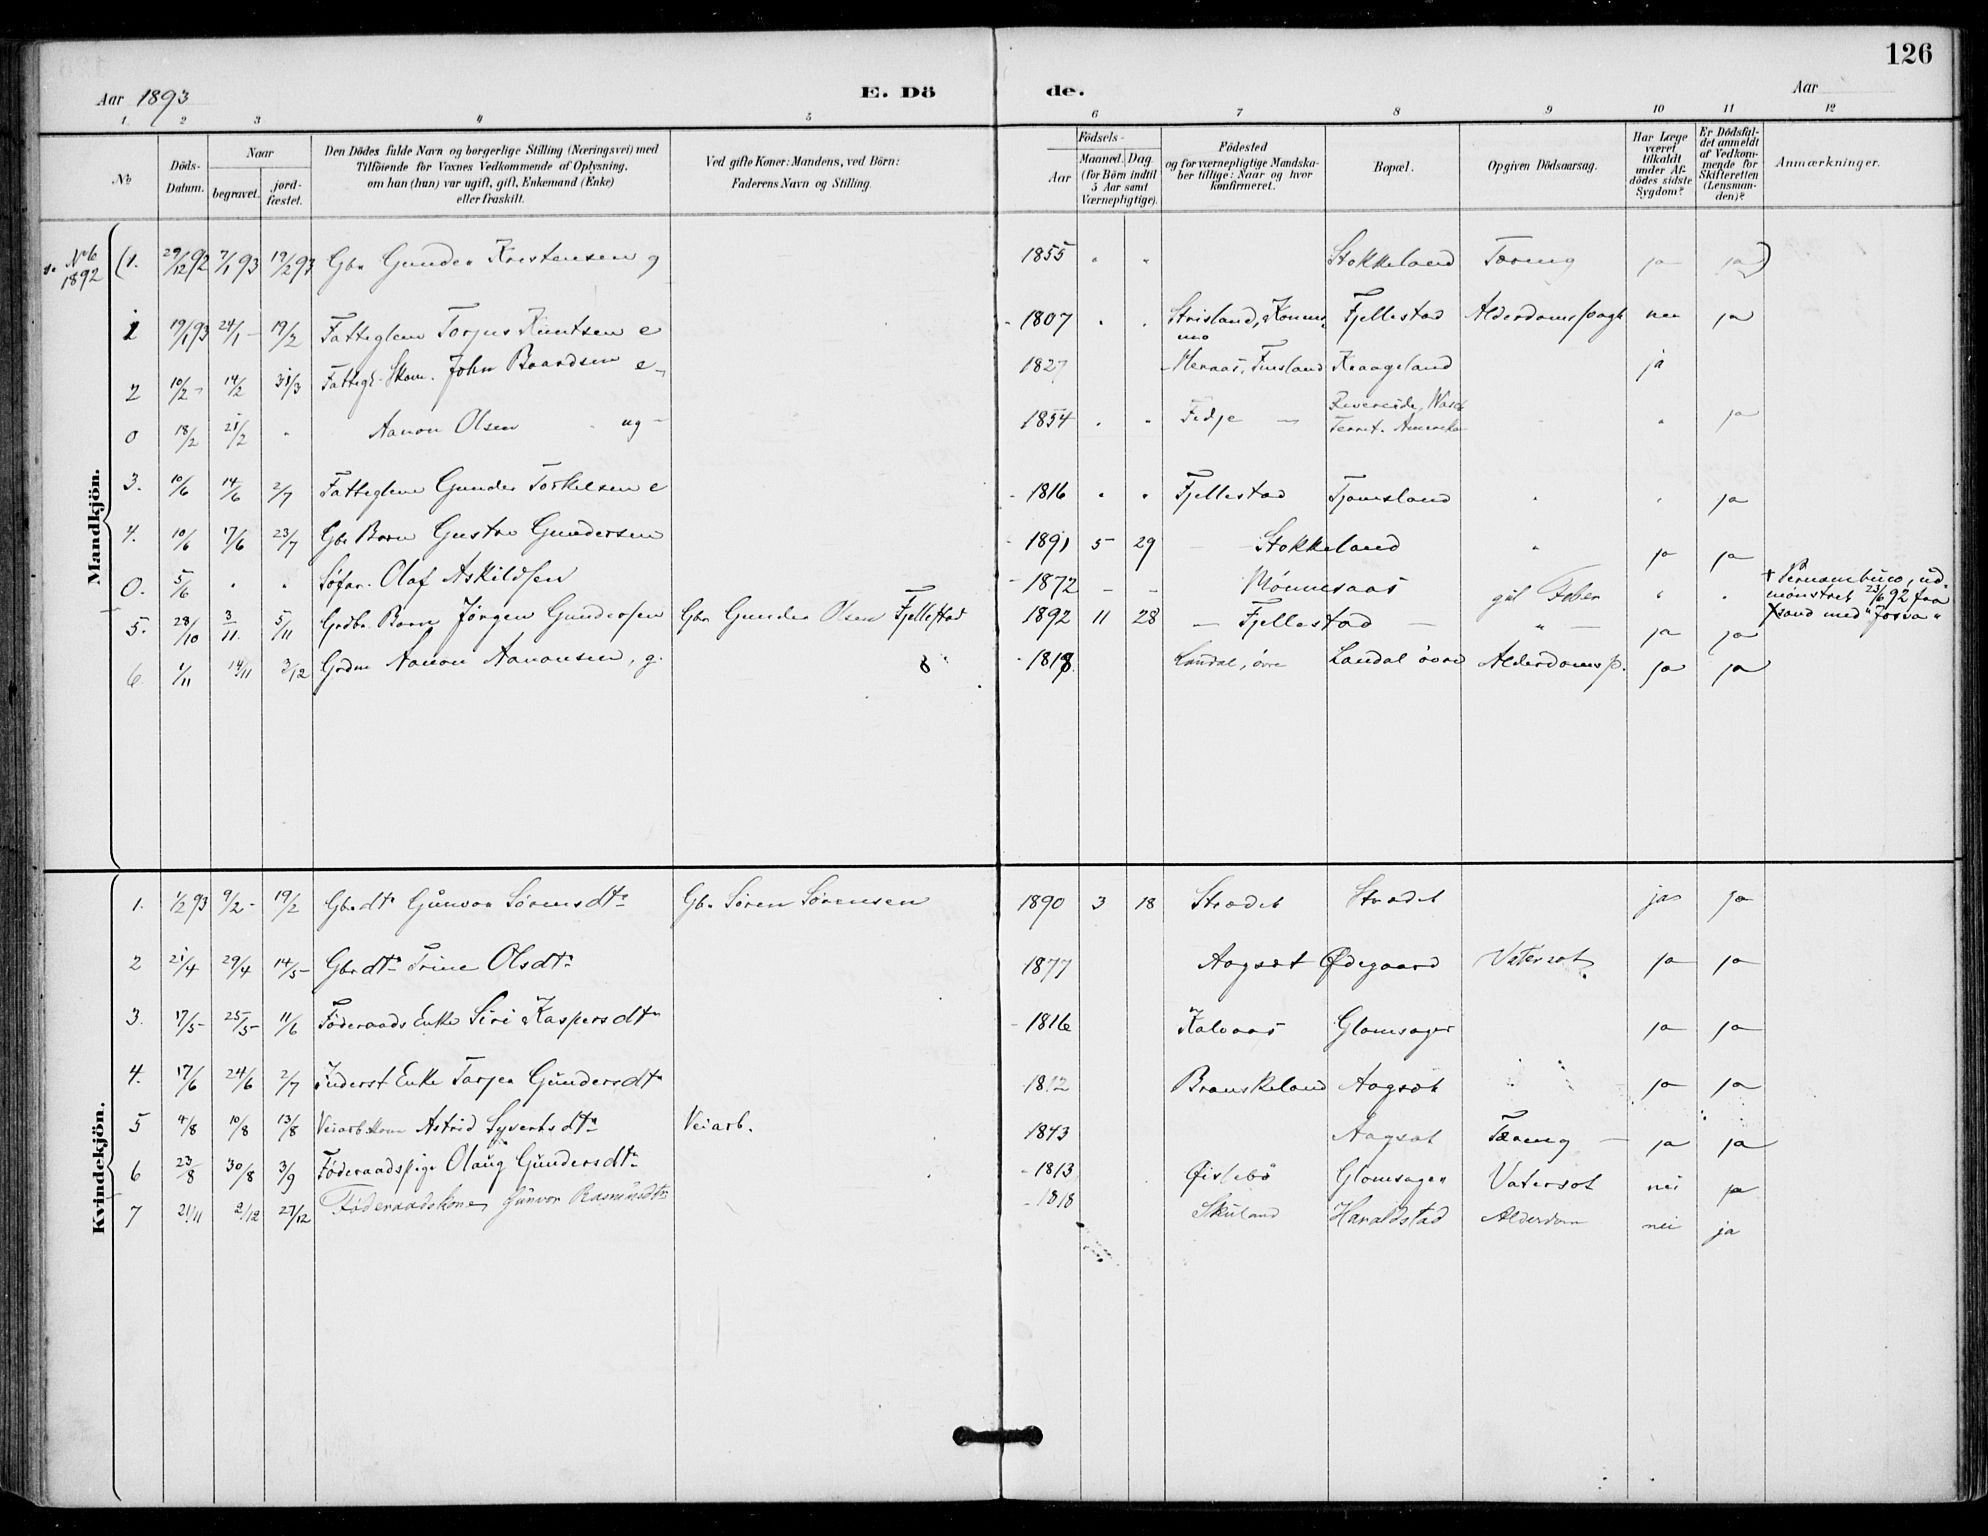 126
Aar 1893 E. Dö de. Aar
1. 2 3 4 5 6 7 8 9 10 11 12
№ Döds-Datum. Naar begravet. jord-fæstet. Den Dödes fulde Navn og borgerlige Stilling (Næringsvei) med Tilföiende for Voxnes Vedkommende af Oplysning, om han (hun) var ugift, gift, Enkemand (Enke) eller fraskilt. Ved gifte Koner: Mandens, ved Börn: Faderens Navn og Stilling. Födsels- Aar Maaned. Dag. (for Börn indtil 5 Aar samt Værnepligtige). Födested og for værnepligtige Mandska-ber tillige: Naar og hvor konfirmeret. Bopæl. Opgiven Dödsaarsag. Har Læge været tilkaldt under Af-dödes sidste Sygdom? Er Dödsfal-det anmeldt af Vedkom-mende for Skifteretten (Lensman-den)? Anmærkninger.
Mandkjön.
No 6 1892 (1. 29/12 92 7/1 93 19/2 93 Gbr Gunder Kristensen g 1855 " " Stokkeland Tæring ja ja)
1 19/1 93 24/1 - 19/2 Fatteglem Torjus Knutsen e 1807 " " Fjellestad nei ja
2 10/2 - 14/2 31/3 John Baardsen e 1827 Finsland Kraageland ja
0 18/2 21/2 " Aanon Olsen ug 1854 " " Fidje Territ. Amerika " " ja
3. 10/6 14/6 2/7 Fatteglem Gunder Torkelsen e 1816 " " Fjellestad Tjomsland " " ja
4. 10/6 17/6 23/7 Gbr Barn Gustav Gundersen 1891 5 29 Stokkeland " ja ja
0. 5/6 " " Søfar. Olaf Askildsen 1872 - - Mønnesaas gul Feber " " + Pernambuco, ud-
mønstret 23/6 92 fra
Xsand med "Josva"
5. 28/10 3/11. 5/11 Grdbr. Barn Jørgen Gundersen Gbr Gunder Olsen Fjellestad 1892 11 28 - Fjellestad - " - ja ja
6. 1/11 14/11 3/12 Grdm Aanon Aanonsen, g. 8 1818. Laudal, øvre Laudal øvre Alderdoms. ja ja
Kvindekjön.
1. 1/2 93 9/2 - 19/2 Gbr dtr Gunvor Sørensdtr Gbr Søren Sørensen 1890 3 18 Strødet Strødet ja ja
2 21/4 29/4 14/5 Gbr dtr Trine Olsdtr 1877 Aagsæt Ødegaard Vatersot ja ja
3. 17/5 25/5 11/6 Føderaads Enke Siri Kaspersdtr 1816 Kalvaas Glomsager ja ja
4. 17/6 24/6 2/7 Inderst Enke Tarjer Gundersdtr 1812 Brunskeland Aagsæt ja ja
5 4/8 10/8 13/8 Veiarb.kone Astrid Syvertsdtr Veiarb. 1843 Aagsæt Tæring ja ja
6 23/8 30/8 3/9 Føderaadspige Olaug Gundersdtr 1813 Øislebø Glomsager Vatersot nei ja
7 21/11 2/12 27/12 Føderaadskone Gunvor Rasmusdtr 1818 Skuland Haraldstad Alderdom nei ja